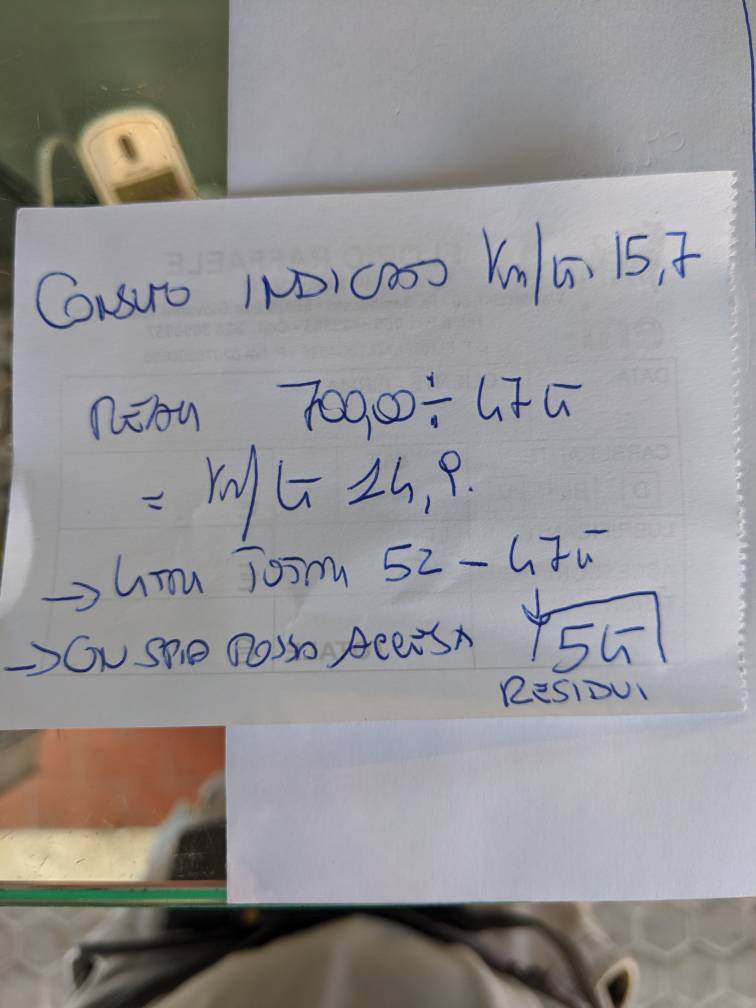 CONSUMO INDICATO Km/Lt. 15,7
REALI 700,00 ÷ 47 Lt
= Km/Lt 14,9.
→ LITRI TOTALI 52 - 47 Lt
→ CON SPIA ROSSA ACCESA 5 Lt
RESIDUI